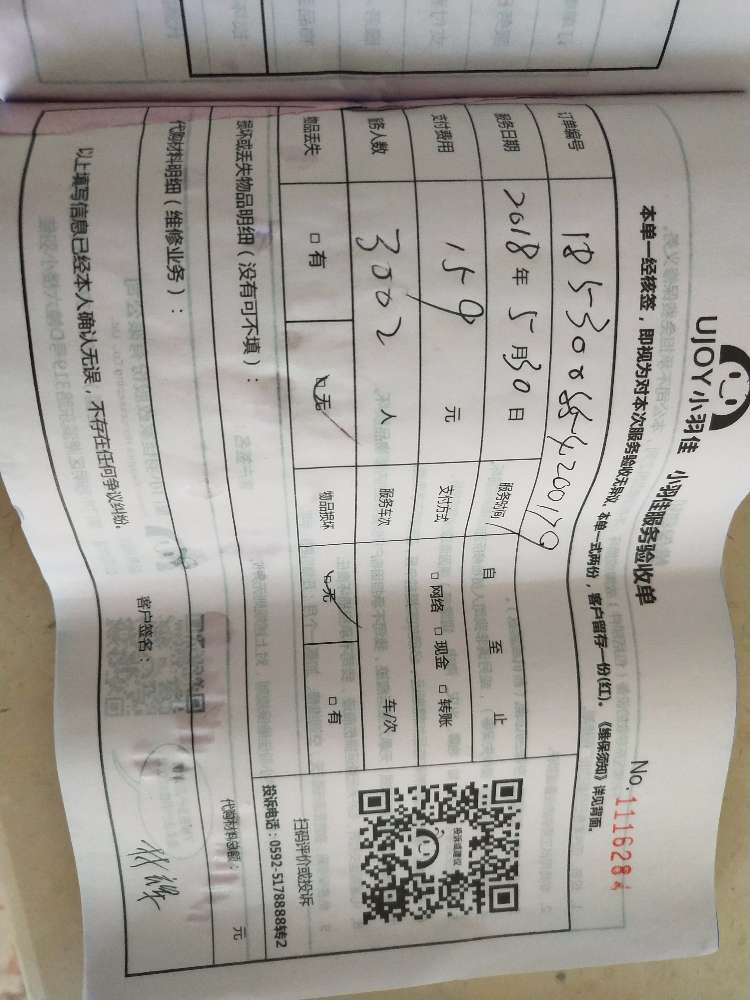 UJOY小羽佳 小羽佳服务验收单 No.111628
本单一经核签，即视为对本次服务验收无异议。本单一式两份，客户留存一份(红)。《维保须知》详见背面。
订单编号
服务日期 2018年5月30日 服务时间 自 至 止
支付费用 159 元 支付方式 □网络 □现金 □转账
服务人数 3002 人 服务车次 车/次
物品丢失 □有 ☑无 物品损坏 ☑无 □有
投诉或建议
扫码评价或投诉
投诉电话：0592-5178888转2
损坏或丢失物品明细（没有可不填）：
代购材料明细（维修业务）： 代购材料总额： 元
以上填写信息已经本人确认无误，不存在任何争议纠纷。 客户签名：